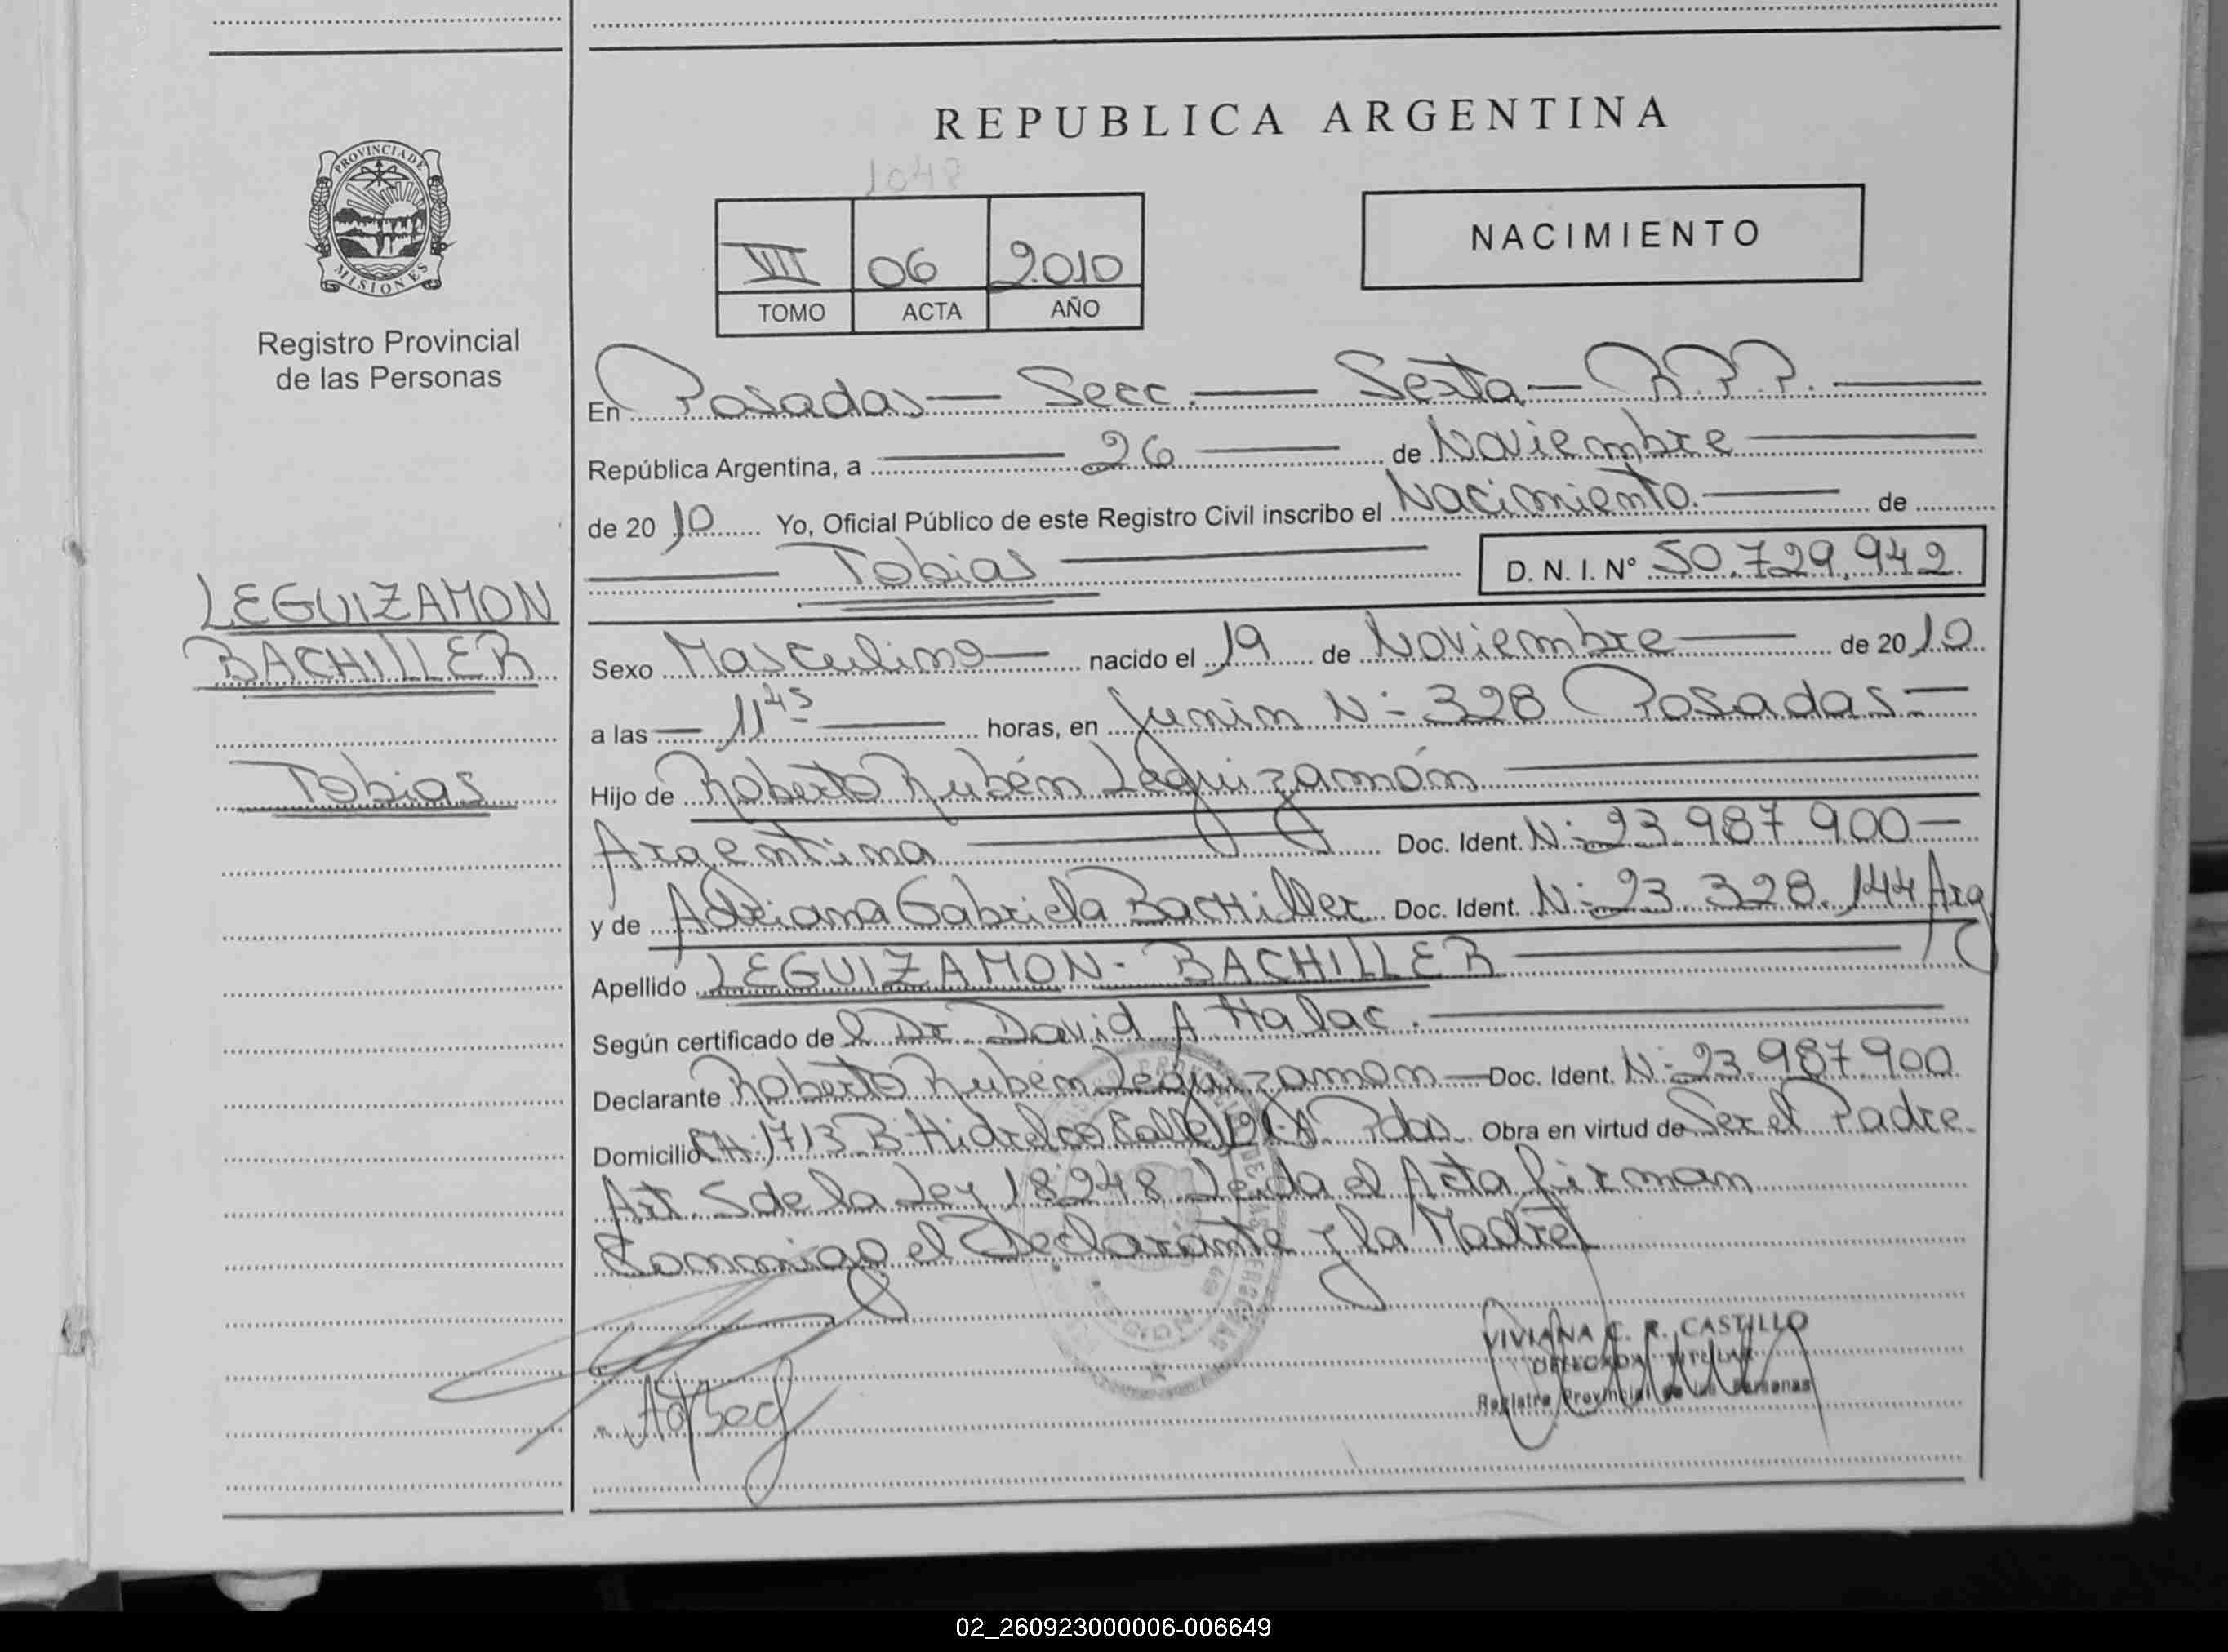 REPUBLICA ARGENTINA
1048
PROVINCIA DE
MISIONES
Registro Provincial
de las Personas
VII 06 2010
TOMO ACTA AÑO
NACIMIENTO
En Posadas — Secc. — Sexta — R.P.P. —
República Argentina, a — 26 — de Noviembre —
de 20 10 Yo, Oficial Público de este Registro Civil inscribo el Nacimiento. — de
— Tobias — D. N. I. N° 50.729.942
LEGUIZAMON
BACHILLER
Tobias
Sexo Masculino — nacido el 19 de Noviembre — de 20 10
a las — 11 45 — horas, en Junin N: 328 Posadas —
Hijo de Roberto Rubén Leguizamón —
Argentina — Doc. Ident. N: 23.987.900 —
y de Adriana Gabriela Bachiller Doc. Ident. N: 23.328.144 Arg
Apellido LEGUIZAMON - BACHILLER —
Según certificado de l Dr. David A Halac. —
Declarante Roberto Rubén Leguizamon — Doc. Ident. N: 23.987.900
Domicilio CH: 1713 B Hidrelco Calle Pdas Obra en virtud de Ser el Padre
Art. 5 de la Ley 18248 Leida el Acta firman
Conmigo el Declarante y la Madre
VIVIANA C. R. CASTILLO
DELEGADA TITULAR
Registro Provincial de las Personas
02_260923000006-006649